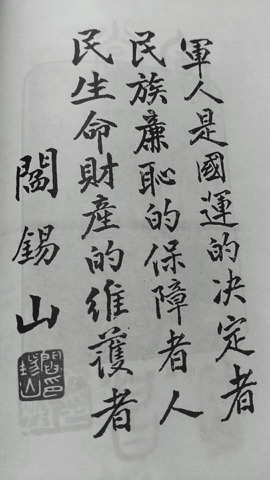 軍人是國運的决定者
民族廉恥的保障者人
民生命財產的維護者
閻錫山
閻錫山印